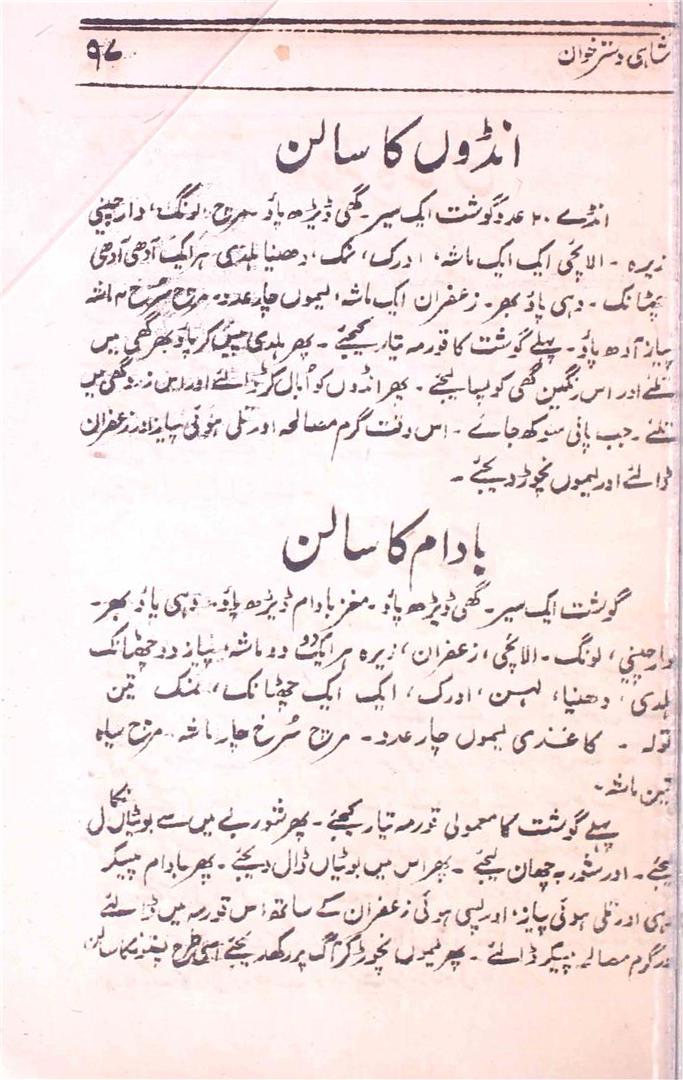 شاہی دستر خوان
۹۷
انڈوں کا سالن
انڈے ۲۰ عدد گوشت ایک سیر۔ گھی ڈیڑھ پاؤ۔ مرچ، لونگ، دارچینی
زیرہ۔ الائچی ایک ایک ماشہ، ادرک، نمک، دھنیا ہلدی ہر ایک آدھی آدھی
چھٹانک۔ دہی پاؤ بھر۔ زعفران ایک ماشہ، لیموں چار عدد۔ مرچ سرخ ماشہ
پیاز آدھ پاؤ۔ پہلے گوشت کا قورمہ تیار کیجئے۔ پھر ہلدی پیس کر پاؤ بھر گھی میں
تلئے اور اس رنگین گھی کو بسا لیجئے۔ پھر انڈوں کو اُبال کر ڈالئے اور اس زرد گھی میں
تلئے۔ جب پانی سوکھ جائے۔ اس وقت گرم مصالحہ اور تلی ہوئی پیاز اور زعفران
ڈالئے اور لیموں نچوڑ دیجئے۔
بادام کا سالن
گوشت ایک سیر۔ گھی ڈیڑھ پاؤ۔ مغز بادام ڈیڑھ پاؤ۔ دہی پاؤ بھر۔
دارچینی، لونگ۔ الائچی، زعفران، زیرہ ہر ایک دو دو ماشہ، پیاز دو چھٹانک
ہلدی، دھنیا، لہسن، ادرک، ایک ایک چھٹانک، نمک تین
تولہ۔ کاغذی لیموں چار عدد۔ مرچ سُرخ چار ماشہ۔ مرچ سیاہ
تین ماشہ۔
پہلے گوشت کا معمولی قورمہ تیار کیجئے۔ پھر شوربے میں سے بوٹیاں نکال
لیجئے۔ اور شوربہ چھان لیجئے۔ پھر اس میں بوٹیاں ڈال دیجئے۔ پھر بادام پیسکر
دہی اور تلی ہوئی پیاز، اور پسی ہوئی زعفران کے ساتھ اس قورمہ میں ڈالئے
اور گرم مصالحہ پیسکر ڈالئے۔ پھر لیموں نچوڑ کر آگ پر رکھ دیجئے اسی طرح کا سالن